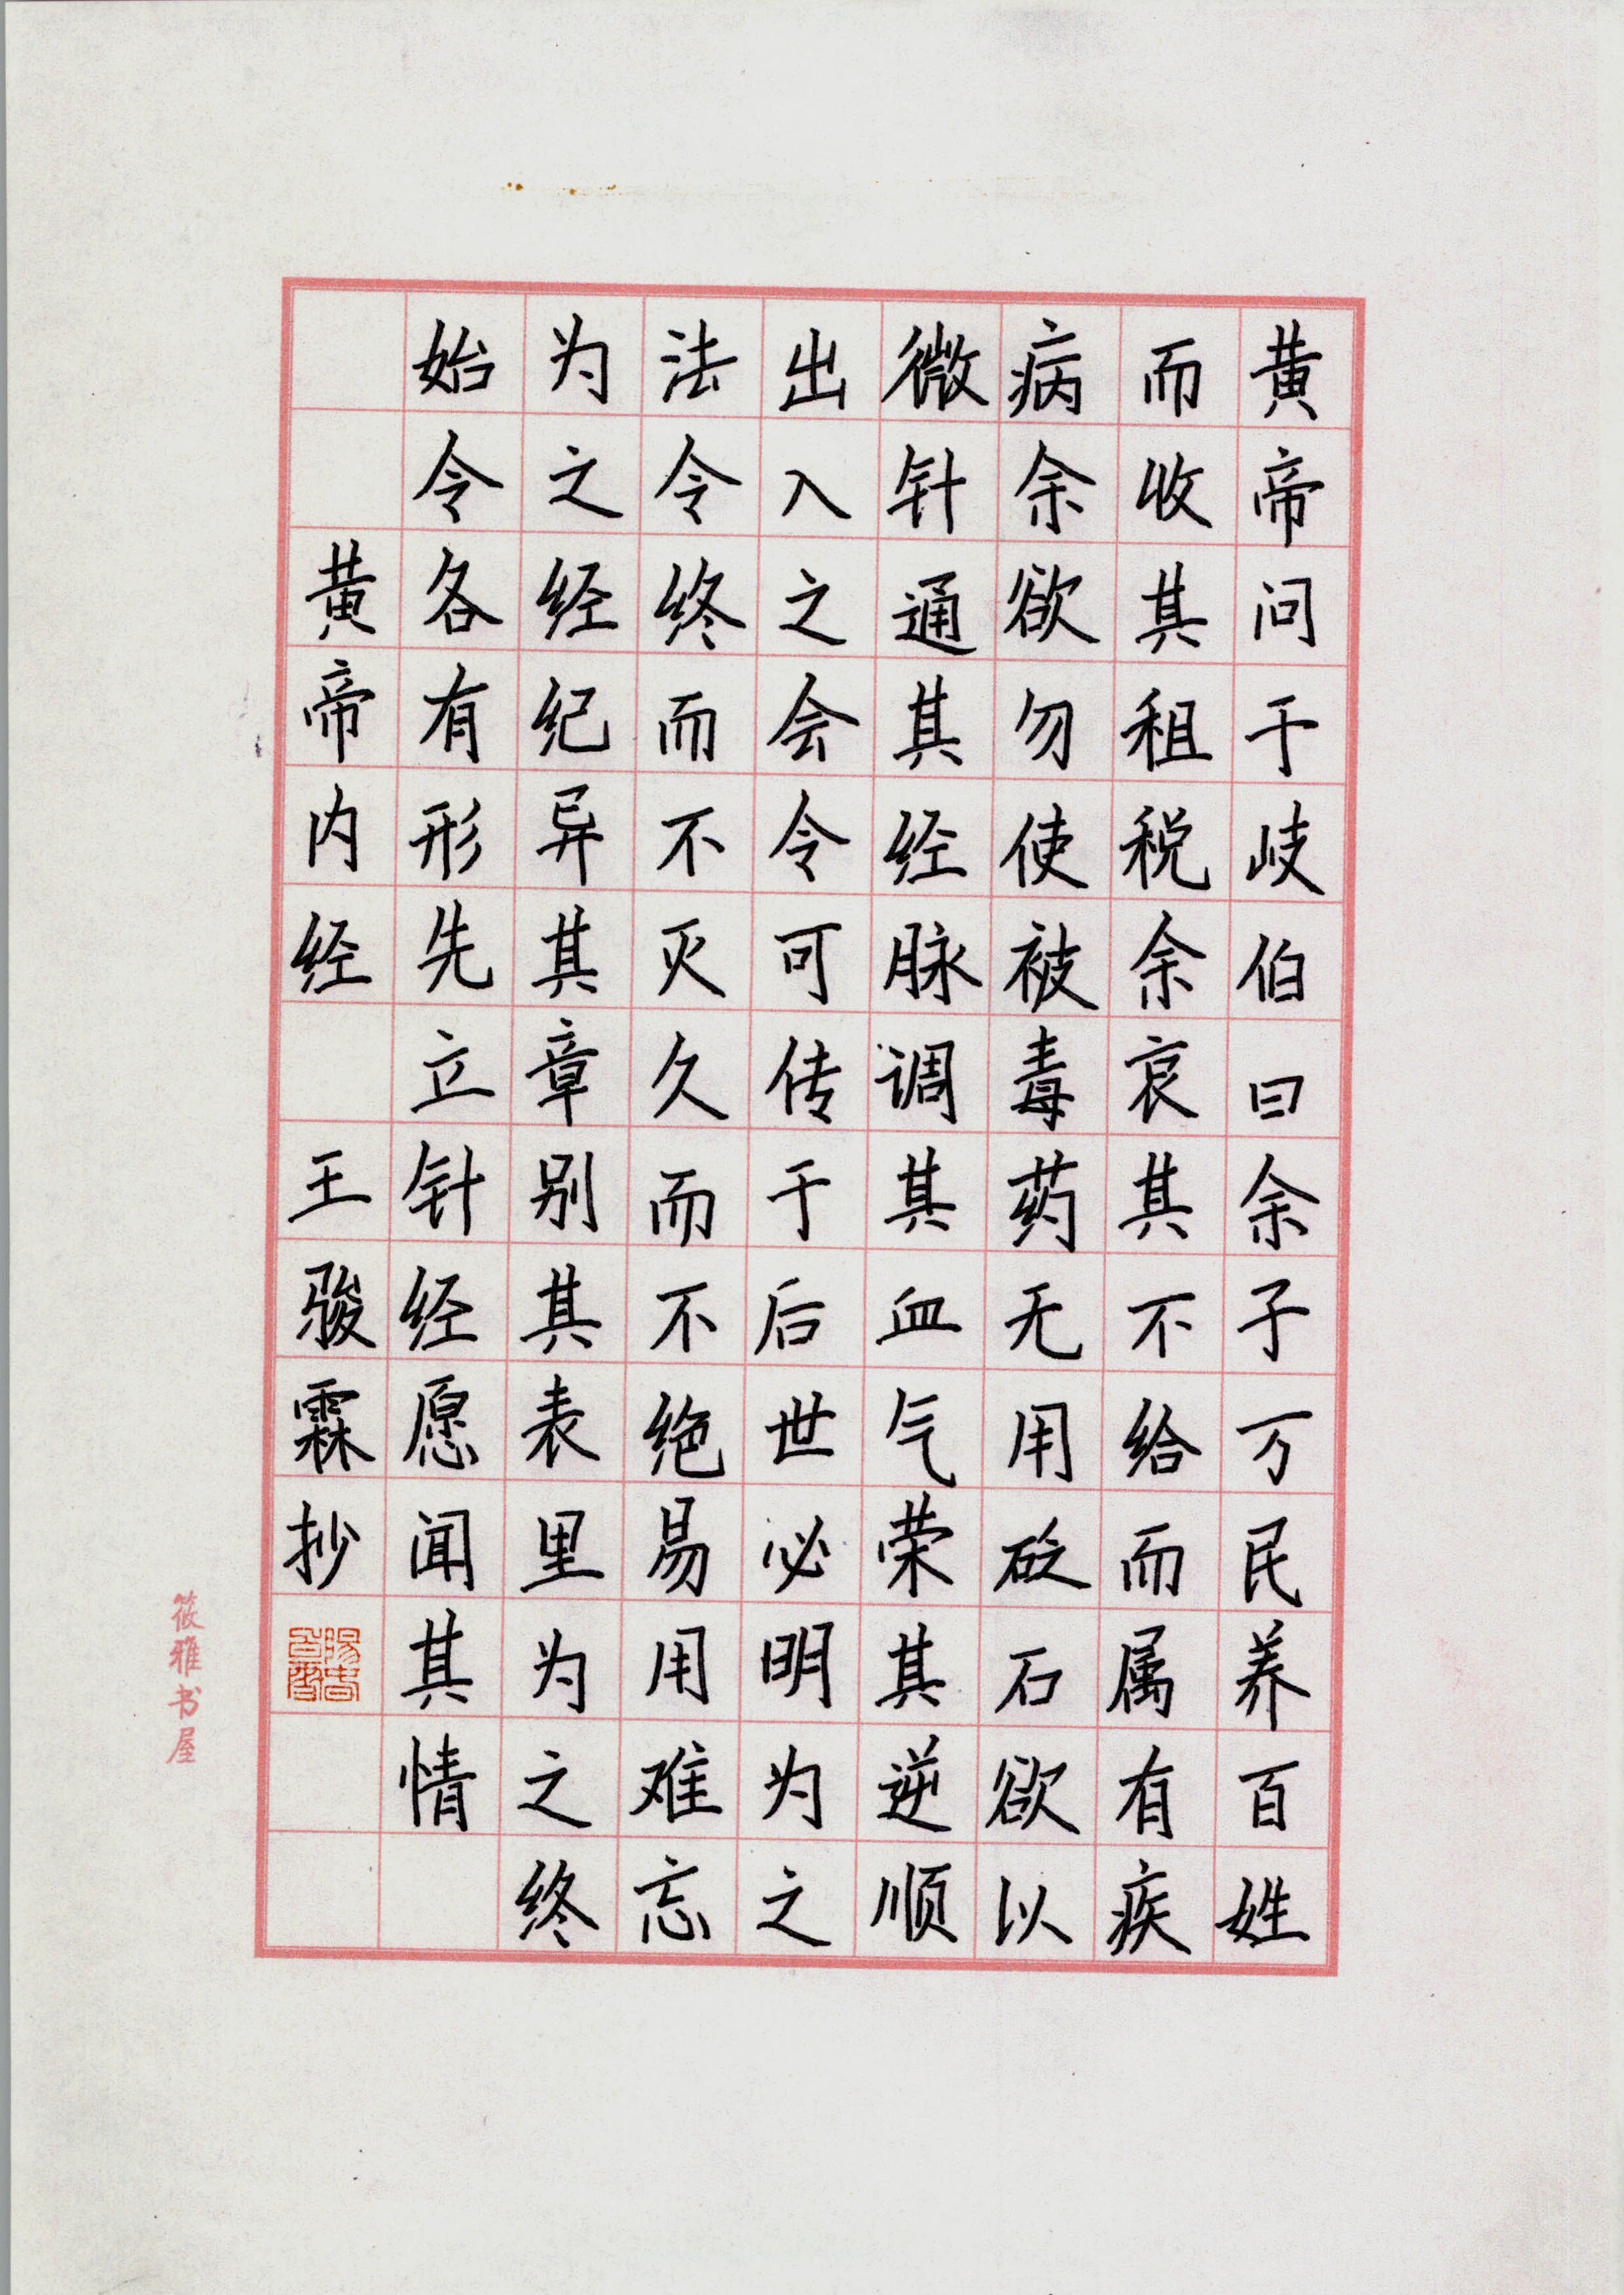 黄帝问于岐伯曰余子万民养百姓
而收其租税余哀其不给而属有疾
病余欲勿使被毒药无用砭石欲以
微针通其经脉调其血气荣其逆顺
出入之会令可传于后世必明为之
法令终而不灭久而不绝易用难忘
为之经纪异其章别其表里为之终
始令各有形先立针经愿闻其情
黄帝内经 王骏霖抄
筱雅书屋